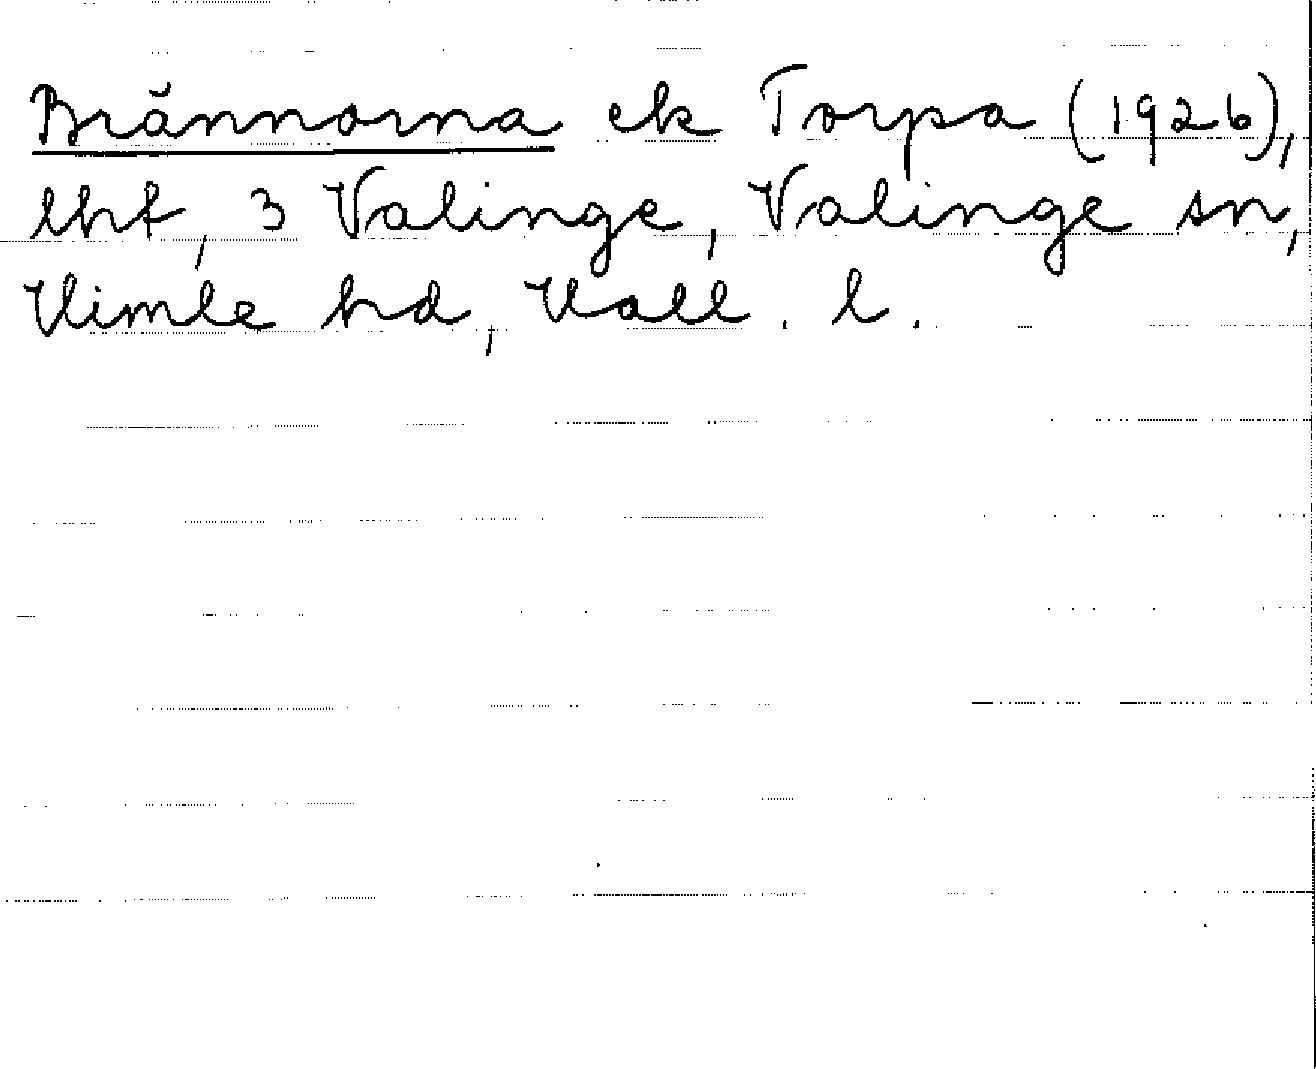 Brännorna ek Torpa (1926),
lht, 3 Valinge, Valinge sn,
Himle hd, Hall. l.